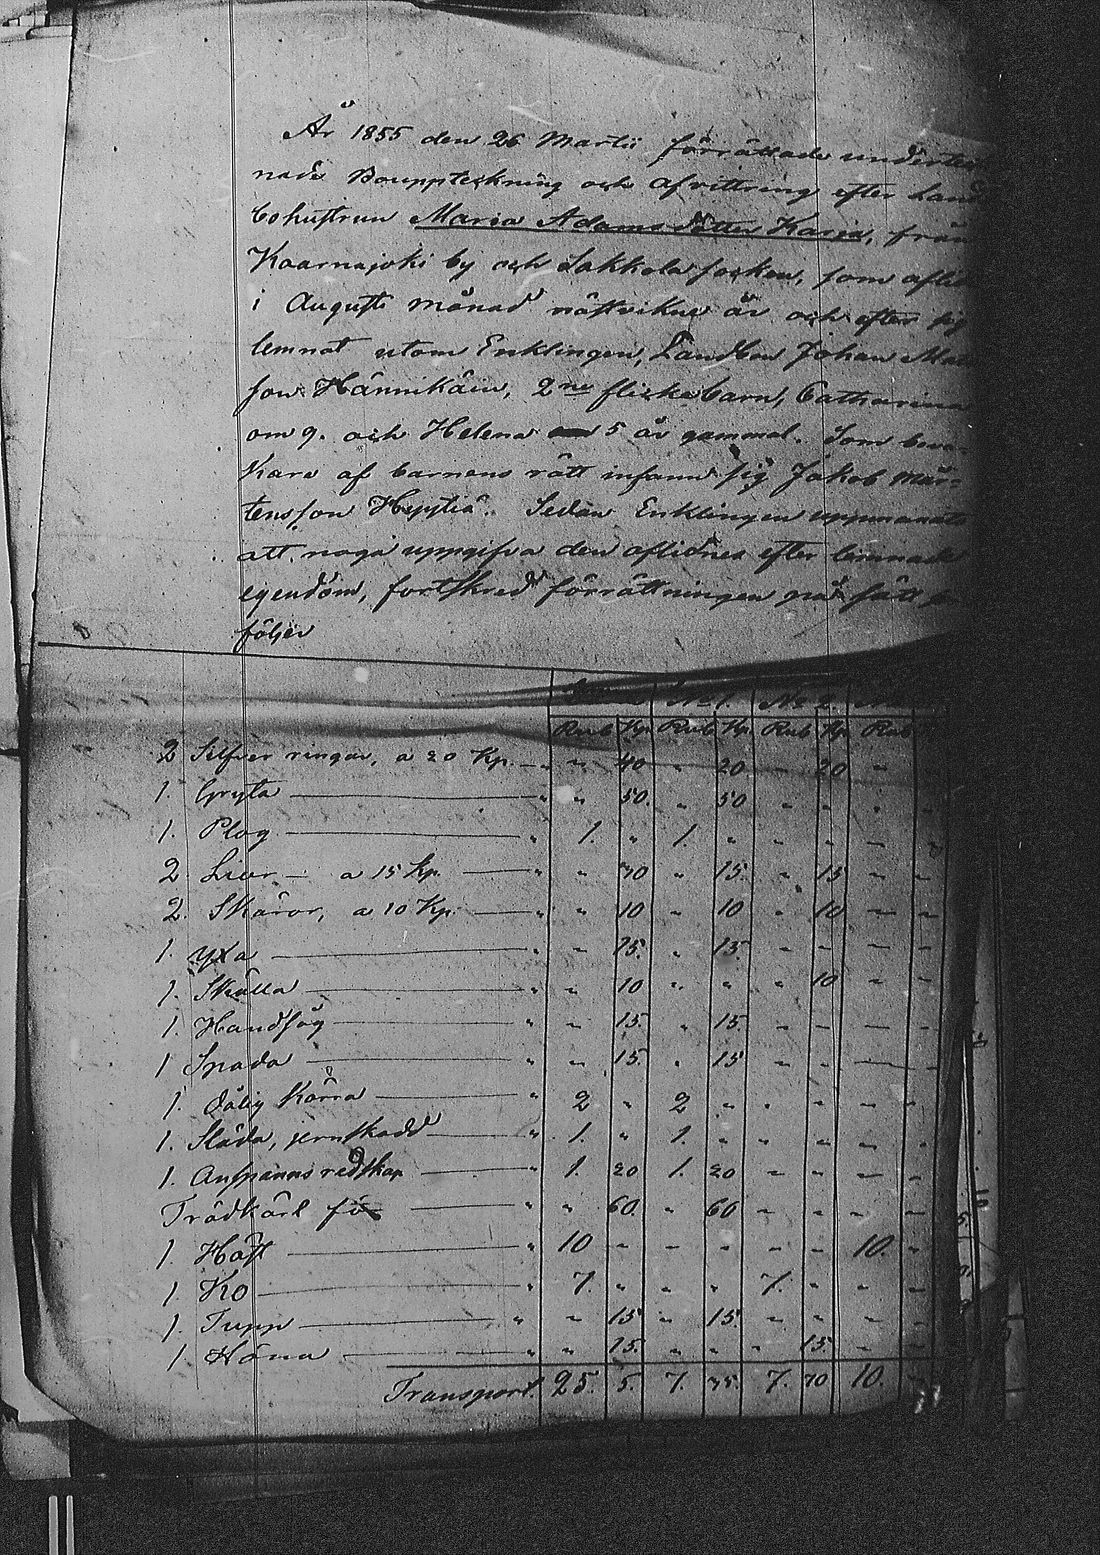 År 1855 den 26 Martii förrättade underteck
nade Bouppteckning och afvittring efter Land
bohustrun Maria Adamsdotter Karja, från
Kaarnajoki by och Sakkola socken, som aflid
i Augusti månad nästvikne år och efter sig
lemnat utom Enklingen, Landbon Johan Mat
son Hännikäin, 2ne flickebarn, Catharina
om 9. och Helena 5 år gammal. Som beva-
kare af barnens rätt infann sig Jakob Mår-
tensson Hyytiä. Sedan Enklingen uppmanats
att noga uppgifva den aflidnes efter lemnade
egendom, fortskred förrättningen på sätt som
följer
No 1. No 2.
Rub Kp. Rub Kp. Rub Kp. Rub
2 Silfver ringar, a 20 Kp. — " " 40 " 20 — 20 —
1. Gryta — " " 50. " 50 - - - -
1. Plog — " 1. " 1. " - - - -
2 Liar — a 15 Kp. — " " 30 " 15. - 15 - -
2. Skäror, a 10 Kp. — " " 10 - 10 - 10 - -
1. Yxa — " - 15. " 15. - - - -
1. Skälla — " " 10 " " " 10 - -
1. Handsåg — " - 15. " 15. - - - -
1 Spada — " - 15. " 15 - - - -
1. dålig Kärra — " 2 " 2 " " - - -
1. Släda, jernskodd — " 1. " 1. " - - - -
1. Anspanns redskap — " 1. 20 1. 20 - - - -
Trädkärl för — " " 60. " 60 - - - -
1. Häst — " 10 - - - - - 10. -
1 Ko — " 7. " " " 7. " - -
1. Tupp — " - 15 " 15. - - - -
1. Höna — " " 15. - - " 15. - -
Transport. 25. 5. 7. 35. 7. 70 10. -